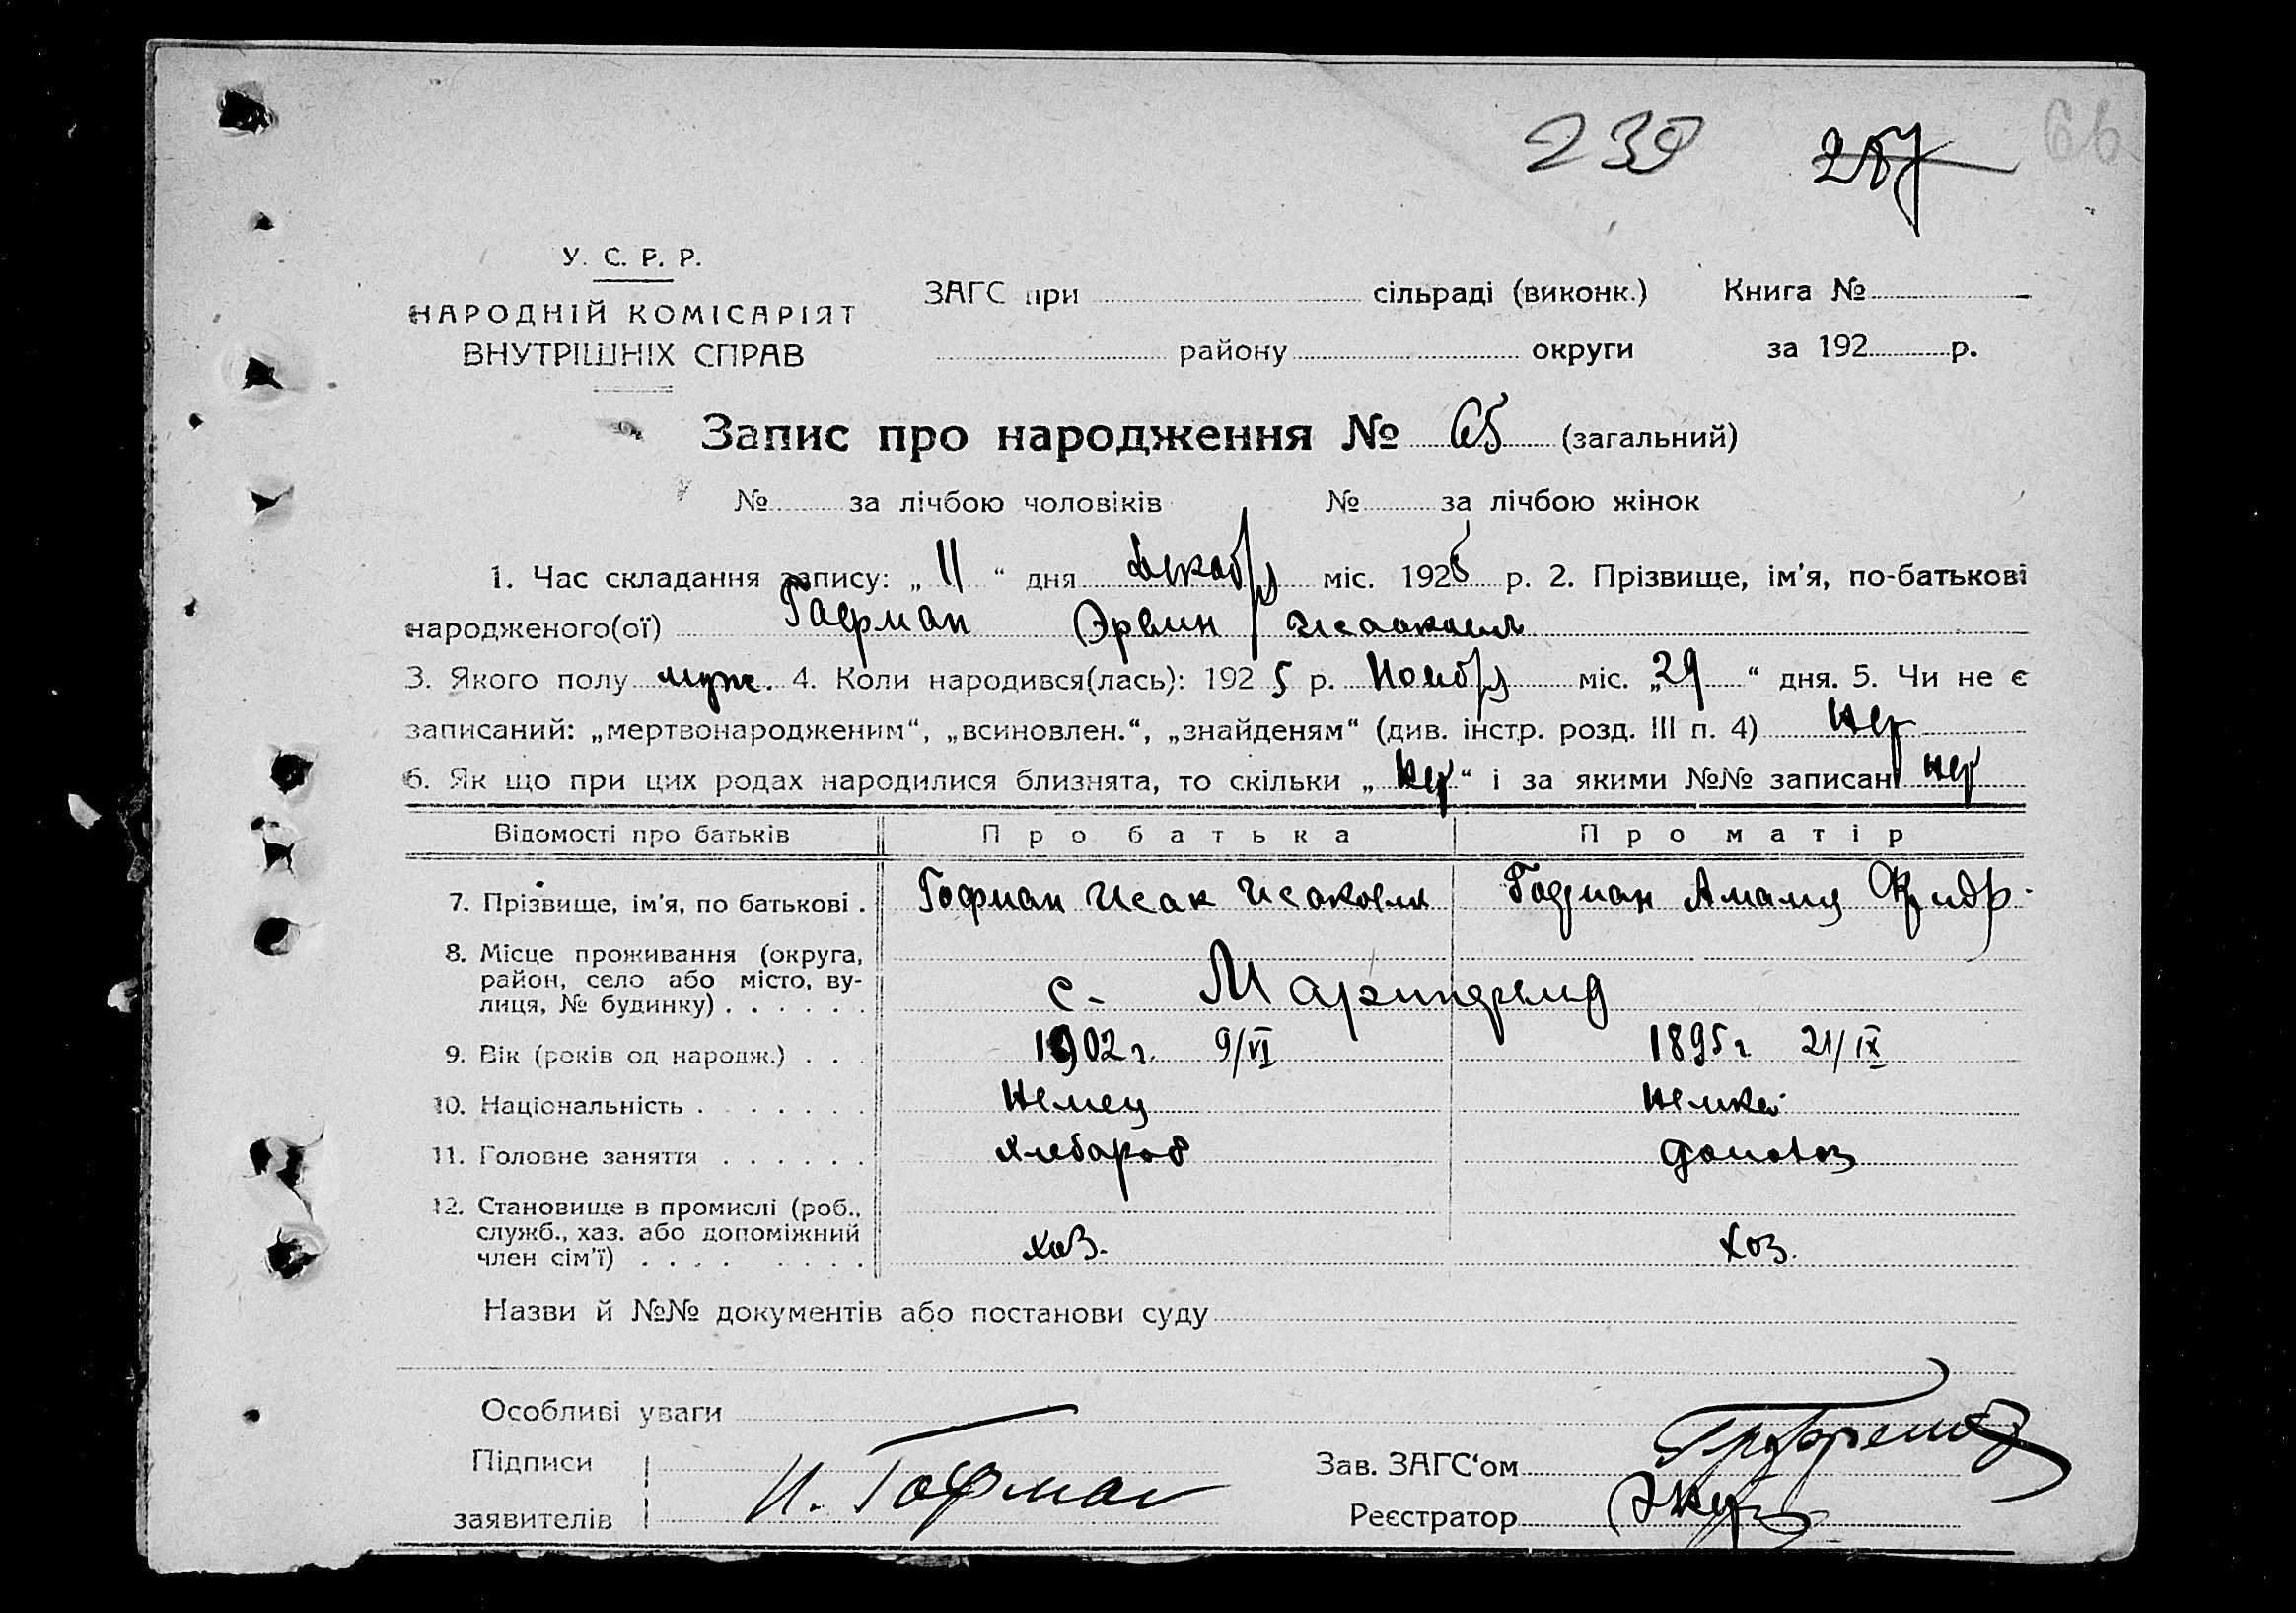 239 287 66
У. С. Р. Р.
НАРОДНІЙ КОМІСАРІЯТ
ВНУТРІШНІХ СПРАВ
ЗАГС при сільраді (виконк.) Книга №
району округи за 192 р.
Запис про народження № 65 (загальний)
№ за лічбою чоловіків № за лічбою жінок
1. Час складання запису: „ 11 “ дня декабр міс. 1925 р. 2. Прізвище, ім’я, по-батькові
народженого(ої) Гофман Эрвин Исаакович
3. Якого полу муж. 4. Коли народився(лась): 192 5 р. Ноябр міс. „29 “ дня. 5. Чи не є
записаний: „мертвонародженим“, „всиновлен.“, „знайденям“ (див. інстр. розд. III п. 4) нет
6. Як що при цих родах народилися близнята, то скільки „ нет “ і за якими №№ записані нет
Відомості про батьків Про батька Про матір
7. Прізвище, ім’я, по батькові . Гофман Исак Исакович Гофман Амалия Фридр.
8. Місце проживання (округа,
район, село або місто, ву-
лиця, № будинку) . . . . . . с.
9. Вік (років од народж.) . . . 1902 г. 9/VI 1895 г 21/IX
10. Національність . . . . . . . Немец Немка
11. Головне заняття . . . . . . Хлебороб домохоз
12. Становище в промислі (роб.,
служб., хаз. або допоміжний
член сім’ї) . . . . . . . . хоз. хоз.
Назви й №№ документів або постанови суду
Особливі уваги
Підписи
заявителів И. Гофман
Зав. ЗАГС‘ом
Реєстратор